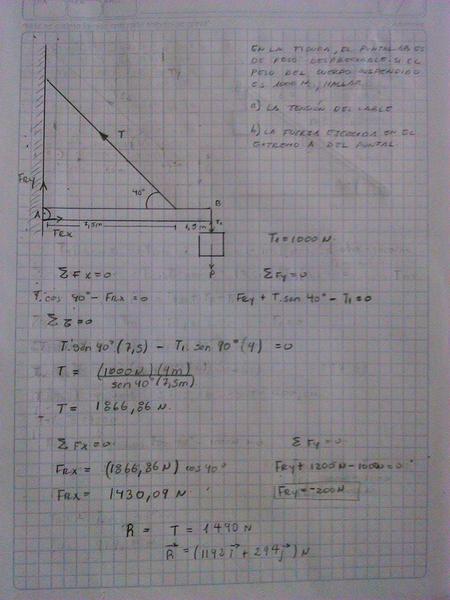 EN LA FIGURA, EL PUNTAL AB ES
DE PESO DESPRECIABLE. SI EL
PESO DEL CUERPO SUSPENDIDO
ES 1000 N, HALLAR
a) LA TENSIÓN DEL CABLE
b) LA FUERZA EJERCIDA EN EL
EXTREMO A DEL PUNTAL
T
FRy
40°
A
B
FRx
2,5m
1,5m
T1
P
T1 = 1000 N
Σ Fx = 0
Σ Fy = 0
T. cos 40° - FRx = 0
FRy + T. sen 40° - T1 = 0
Σ τ = 0
T. sen 40° (2,5) - T1. sen 90° (4) = 0
T = (1000 N)(4m)
sen 40° (2,5m)
T = 1866,86 N.
Σ Fx = 0
Σ Fy = 0
FRx = (1866,86 N) cos 40°
FRy + 1200N - 1000N = 0
FRx = 1430,09 N
FRy = -200N
R = T = 1490 N
R = (1192 i + 294 j) N